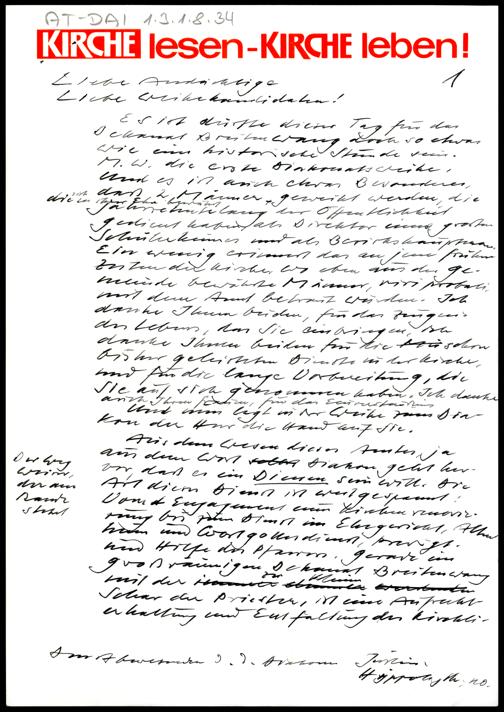 AT-DAI 1.3.1.8.34
KIRCHE lesen-KIRCHE leben!
1
Liebe Andächtige
Liebe Weihekandidaten!
Es ist dürfte dieser Tag für das
Dekanat Breitenwang doch so etwas
wie eine historische Stunde sein.
M.W. die erste Diakonatsweihe.
Und es ist auch etwas Besonderes,
daß 2 Männer geweiht werden, die
jahrzehntelang der Öffentlichkeit
gedient haben, als Direktor eines großen
Schülerheimes und als Bezirkshauptmann.
Ein wenig erinnert das an jene frühen
Zeiten der Kirche, wo eben aus der Ge-
meinde bewährte Männer, viri probati
mit dem Amt betraut wurden. Ich
danke Ihnen beiden, für das Zeugnis
des Lebens, das Sie einbringen, ich
danke Ihnen beiden für die schon
bisher geleisteten Dienste in der Kirche,
und für die lange Vorbereitung, die
Sie auf sich genommen haben. Ich danke
auch Ihren Frauen, für das Einverständnis
Und nun legt in der Weihe zum Dia-
kon der Herr die Hand auf Sie.
Aus dem Wesen dieses Amtes, ja
aus dem Wort selbst Diakon geht her-
vor, daß es ein Dienen sein will. Die
Art dieses Dienst ist weitgespannt:
Vom Engagement zum Kirchenrenovie-
rung bis zum Dienst im Ehegericht, Alten
heim und Wortgottesdienst, Predigt
und Hilfe des Pfarrers. Gerade im
großräumigen Dekanat Breitenwang
mit der kleinen
Schar der Priester, ist eine Aufrecht
erhaltung und Entfaltung des kirchli-
Der Weg
der am
Rande
steht